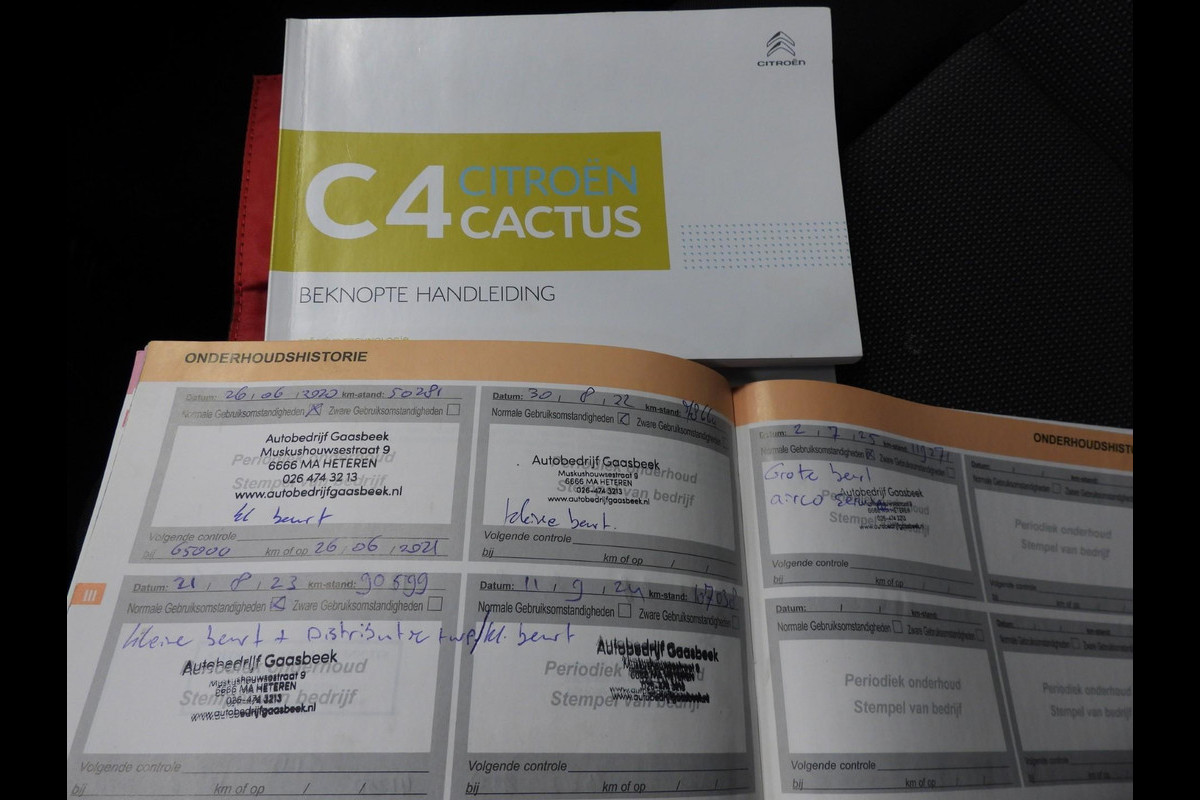 CITROËN
C4 CITROËN
CACTUS
BEKNOPTE HANDLEIDING
ONDERHOUDSHISTORIE
Datum: 26, 06, 2020 km-stand: 50281
Normale Gebruiksomstandigheden Zware Gebruiksomstandigheden
Autobedrijf Gaasbeek
Muskushouwsestraat 9
6666 MA HETEREN
026 474 32 13
www.autobedrijfgaasbeek.nl
Periodiek onderhoud
Stempel van bedrijf
kl beurt
Volgende controle
bij 65000 km of op 26, 06, 2021
Datum: 30, 8, 22 km-stand:
Normale Gebruiksomstandigheden Zware Gebruiksomstandigheden
Autobedrijf Gaasbeek
Muskushouwsestraat 9
6666 MA HETEREN
026-474 3213
www.autobedrijfgaasbeek.nl
Periodiek onderhoud
Stempel van bedrijf
kleine beurt.
Volgende controle
bij km of op / /
III
Datum: 21, 8, 23 km-stand: 90599
Normale Gebruiksomstandigheden Zware Gebruiksomstandigheden
kleine beurt + Distributie
Autobedrijf Gaasbeek
Muskushouwsestraat 9
6666 MA HETEREN
026-474 3213
www.autobedrijfgaasbeek.nl
Periodiek onderhoud
Stempel van bedrijf
Volgende controle
bij km of op / /
Datum: 11, 9, 24 km-stand:
Normale Gebruiksomstandigheden Zware Gebruiksomstandigheden
kl. beurt
Autobedrijf Gaasbeek
Periodiek onderhoud
Stempel van bedrijf
Volgende controle
bij km of op / /
ONDERHOUDSHISTO
Datum: 2, 7, 25 km-stand: 119271
Normale Gebruiksomstandigheden Zware Gebruiksomstandigheden
Grote beurt
airco
Autobedrijf Gaasbeek
Volgende controle
bij km of op / /
Datum: / / km-stand:
Normale Gebruiksomstandigheden
Periodiek onderhoud
Stempel van bedrijf
Volgende controle
bij km of op
Datum: / / km-stand:
Normale Gebruiksomstandigheden Zware Gebruiksomstandigheden
Periodiek onderhoud
Stempel van bedrijf
Volgende controle
bij km of op / /
Datum: / / km-stand:
Normale Gebruiksomstandigheden
Periodiek onderhoud
Stempel van bedrijf
Volgende controle
bij km of op